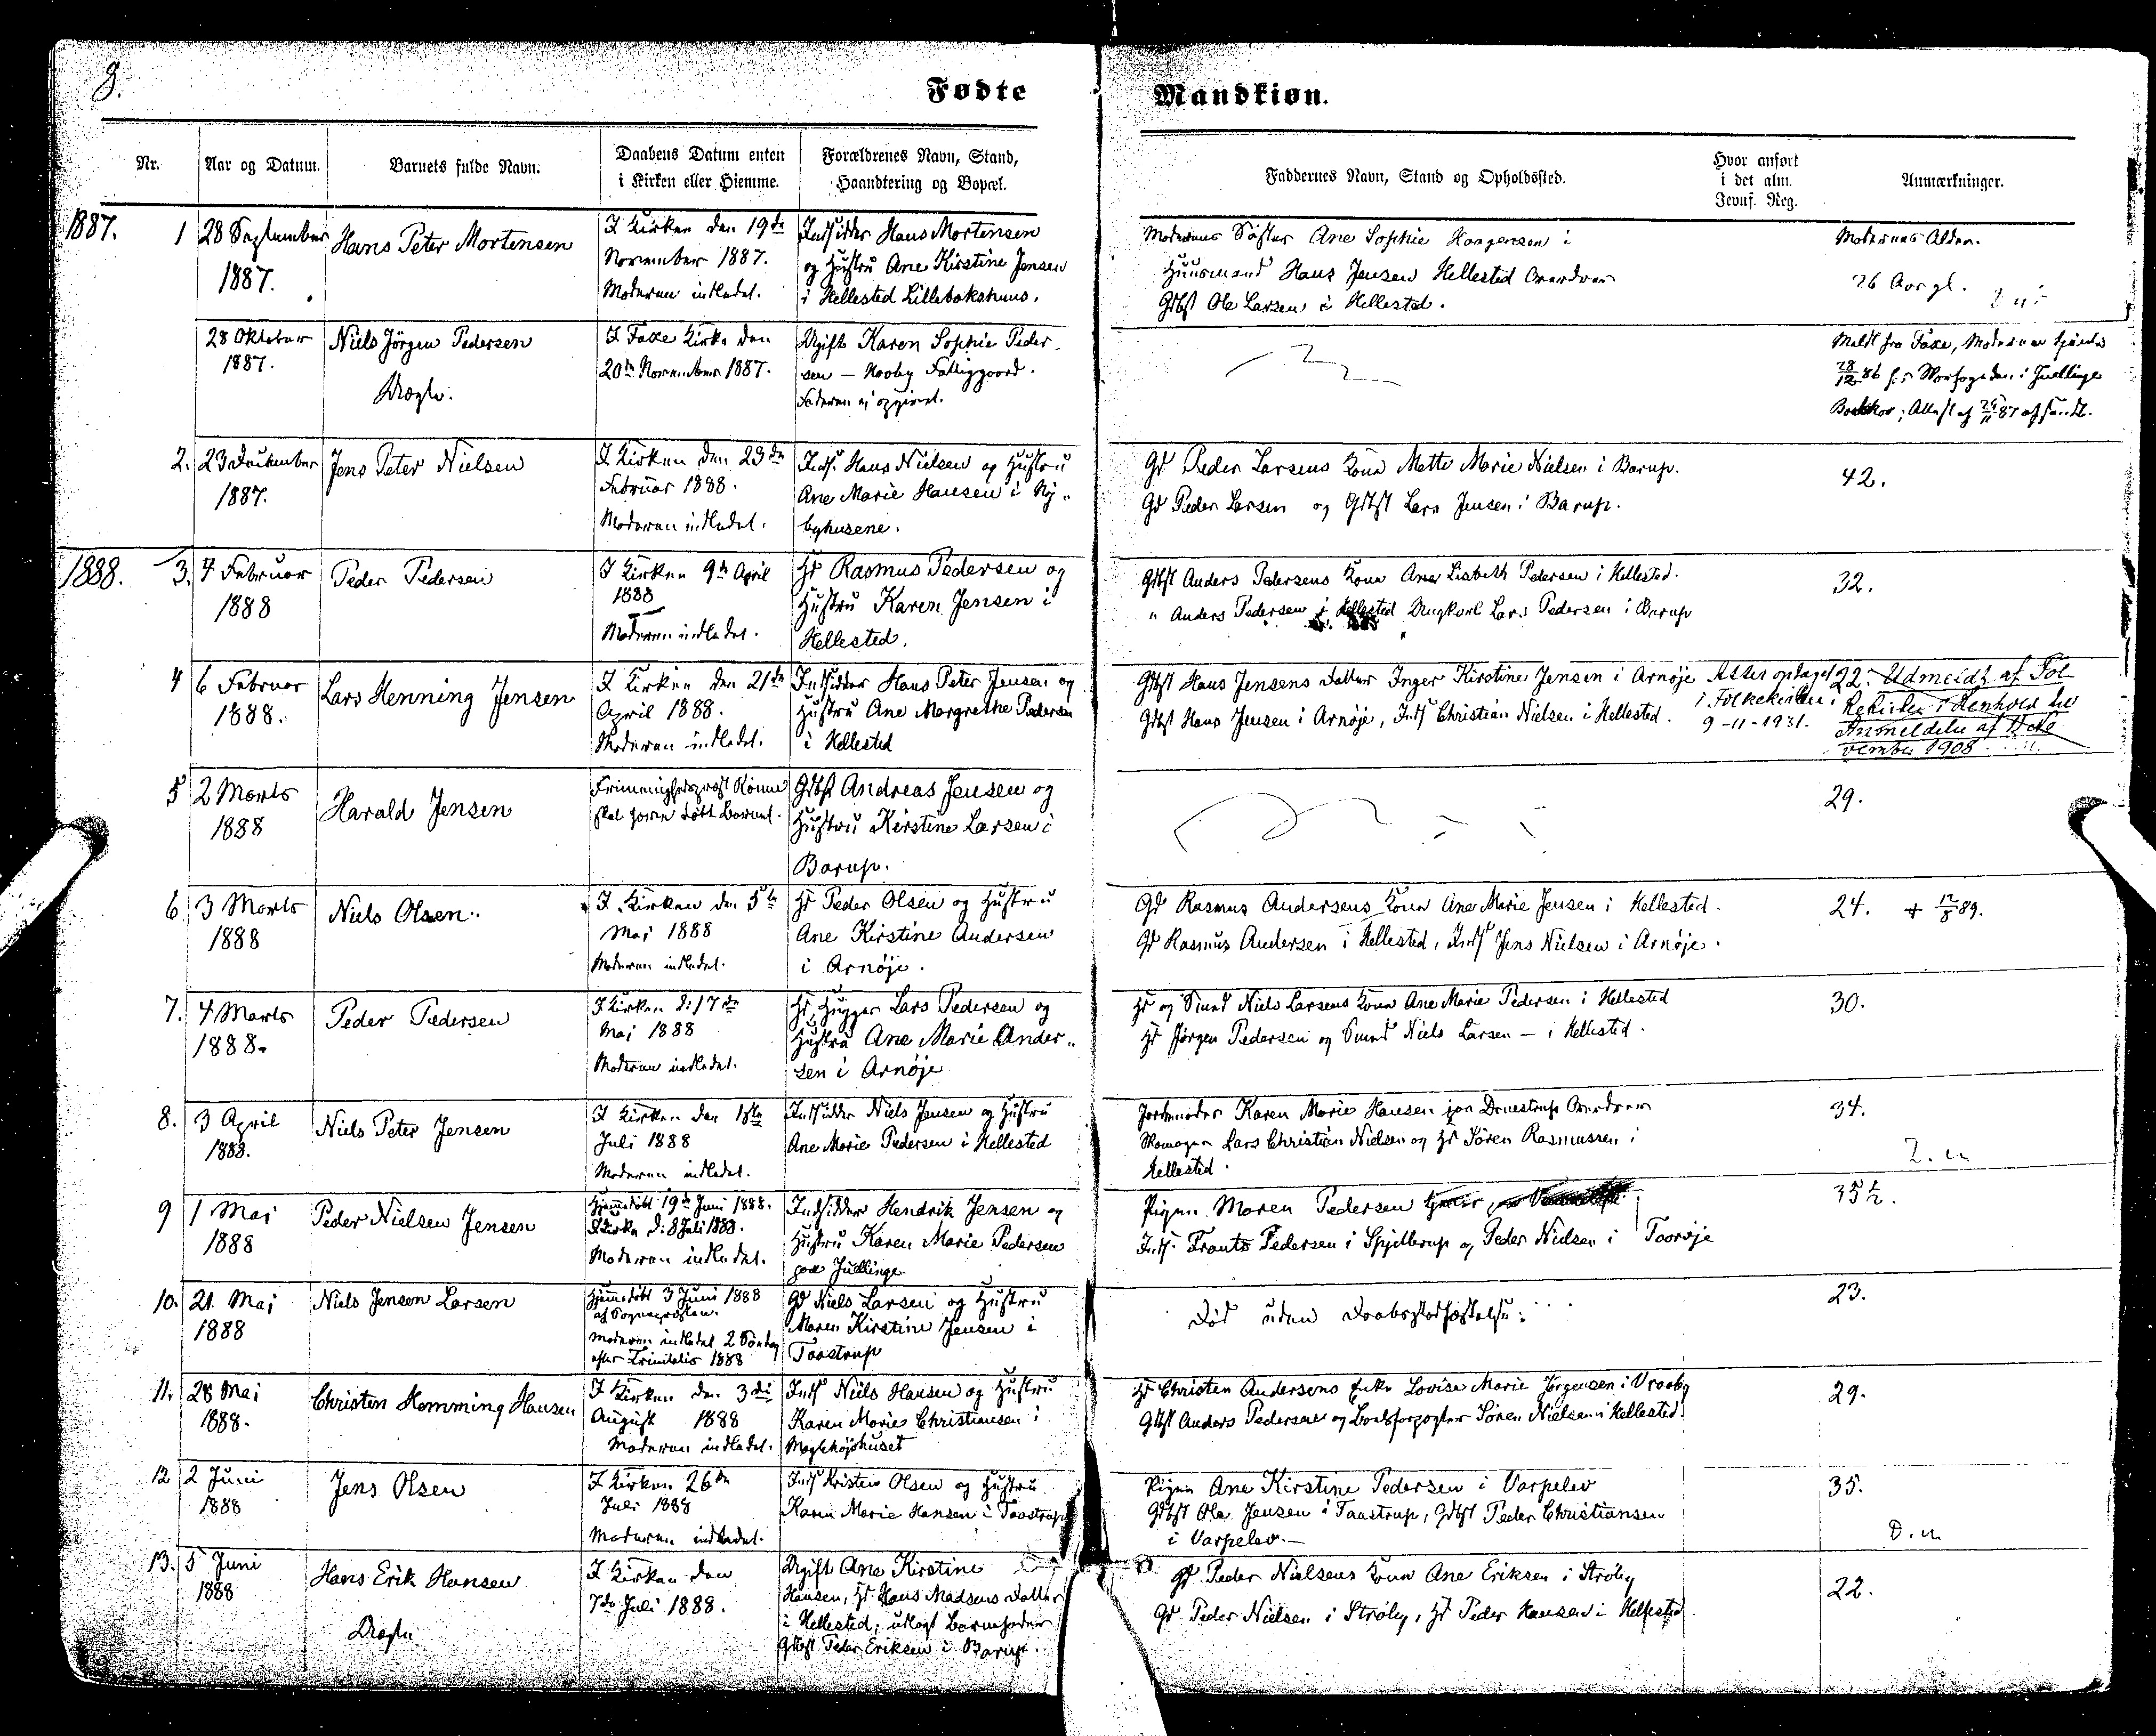 8.
Fødte
Mandkiøn.
Nr.
Aar og Datum.
Barnets fulde Navn.
Daabens Datum enten
i Kirken eller Hiemme.
Forældrenes Navn, Stand,
Haandtering og Bopæl.
Faddernes Navn, Stand og Opholdssted.
Hvor anført
i det alm.
Jevnf. Reg.
Anmærkninger.
1887.
1
28 September
1887.
Hans Peter Mortensen
I Kirken den 19de
November 1887.
Moderen indledet.
Indsidder Hans Mortensen
og Hustru Ane Kirstine Jensen
i Hellested Lillebækshuus.
Moderens Søster Ane Sophie
Huusmand Hans Jensen Hellested Overdrev
Gdbst Ole Larsen i Hellested.
Moderens Alder.
26 Aar gl.
28 Oktober
1887.
Niels Jörgen Pedersen
Uægte.
I Faxe Kirke den
20de November 1887.
Ugift Karen Sophie Peder-
sen — Fattiggaard.
Faderen ej opgivet.
Meldt fra Faxe, Moderen
28/12 86 i Juellinge
87 afsendt.
2.
23 December
1887.
Jens Peter Nielsen
I Kirken den 23de
Februar 1888.
Moderen indledet.
Inds. Hans Nielsen og Hustru
Ane Marie Hansen i Ny-
byhusene.
Gd Peder Larsens Kone Mette Marie Nielsen i Barup.
Gd Peder Larsen og Gdbst Lars Jensen i Barup.
42.
1888.
3.
4 Februar
1888
Peder Pedersen
I Kirken 9de April
1888
Moderen indledet.
Hd Rasmus Pedersen og
Hustru Karen Jensen i
Hellested.
Gdbst Anders Pedersens Kone Ane Lisbeth Pedersen i Hellested.
" Anders Pedersen i Hellested Ungkarl Lars Pedersen i Barup
32.
4
6 Februar
1888.
Lars Henning Jensen
I Kirken den 21de
April 1888.
Moderen indledet.
Indsidder Hans Peter Jensen og
Hustru Ane Margrethe Pedersen
i Hellested
Gdbst Hans Jensens Datter Inger Kirstine Jensen i Arnøje
Gdbst Hans Jensen i Arnøje, Inds Christian Nielsen i Hellested.
Atter optaget
i Folkekirken
9-11-1931.
22. Udmeldt af Fol-
kekirken i Henhold til
Anmeldelse af
vember 1908
5
2 Marts
1888
Harald Jensen
Frimenighedspræst
skal have døbt Barnet.
Gdbst Andreas Jensen og
Hustru Kirstine Larsen i
Barup.
29.
6
3 Marts
1888
Niels Olsen.
I Kirken den 5te
Maj 1888
Moderen indledet.
Hd Peder Olsen og Hustru
Ane Kirstine Andersen
i Arnøje.
Gd Rasmus Andersens Kone Ane Marie Jensen i Hellested.
Gd Rasmus Andersen i Hellested, Inds Jens Nielsen i Arnøje.
24. + 12/8 89.
7.
4 Marts
1888.
Peder Pedersen
I Kirken d. 17de
Maj 1888
Moderen indledet.
Hd, Hugger Lars Pedersen og
Hustru Ane Marie Ander-
sen i Arnøje
Hd og Smed Niels Larsens Kone Ane Marie Pedersen i Hellested
Hd Jørgen Pedersen og Smed Niels Larsen — i Hellested.
30.
8.
3 April
1888.
Niels Peter Jensen
I Kirken den 15de
Juli 1888
Moderen indledet.
Indsidder Niels Jensen og Hustru
Ane Marie Pedersen i Hellested
Jordemoder Karen Marie Hansen paa Overdrev
Skomager Lars Christian Nielsen og Hd Sören Rasmussen i
Hellested.
34.
9
1 Maj
1888
Peder Nielsen Jensen
Hjemmedøbt 19de Juni 1888.
I Kirke d. 8 Juli 1888.
Moderen indledet.
Indsidder Hendrik Jensen og
Hustru Karen Marie Pedersen
paa Juellinge
Pigen Maren Pedersen
Inds. Frants Pedersen i Spjellerup og Peder Nielsen i Taarøje
35½.
10.
21 Maj
1888
Niels Jensen Larsen
Hjemmedøbt 3 Juni 1888
af Sognepræsten.
Moderen indledet 2 Söndag
efter Trinitatis 1888
Gd Niels Larsen og Hustru
Maren Kirstine Jensen i
Taastrup
Død uden Daabsstadfæstelse.
23.
11.
28 Maj
1888.
Christen Hemming Hansen
I Kirken den 3die
August 1888
Moderen indledet.
Inds Niels Hansen og Hustru
Karen Marie Christiansen i
Maglehøjshuset
Hd Christen Andersens Enke Lovise Marie Jörgensen i Vraaby
Gdbst Anders Pedersen og Sören Nielsen i Hellested.
29.
12
2 Juni
1888
Jens Olsen
I Kirken 26de
Juli 1888
Moderen indledet.
Inds Kristen Olsen og Hustru
Karen Marie Hansen i Taastrup
Pigen Ane Kirstine Pedersen i Varpelev
Gdbst Ole Jensen i Taastrup, Gdbst Peder Christiansen
i Varpelev.—
35.
13.
5 Juni
1888
Hans Erik Hansen
Uægte
I Kirken den
7de Juli 1888.
Ugift Ane Kirstine
Hansen, Hd Hans Madsens Datter
i Hellested, udlagt Barnefader
Gdbst Peder Eriksen i Barup.
Gd Peder Nielsens Kone Ane Eriksen i Strøby
Gd Peder Nielsen i Strøby, Hd Peder Hansen i Hellested.
22.